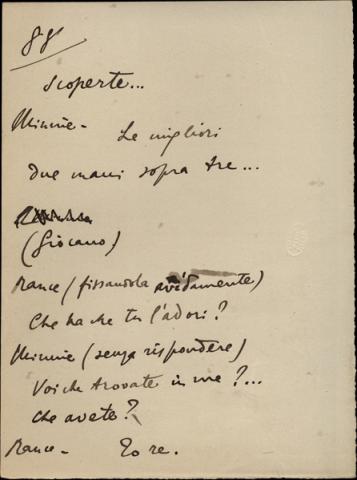 88
scoperte...
Minnie - Le migliori
due mani sopra tre...
(Giocano)
Rance (fissandola avidamente)
Che ha che tu l'adori?
Minnie (senza rispondere)
Voi che trovate in me?...
Che avete?
Rance - Io re.